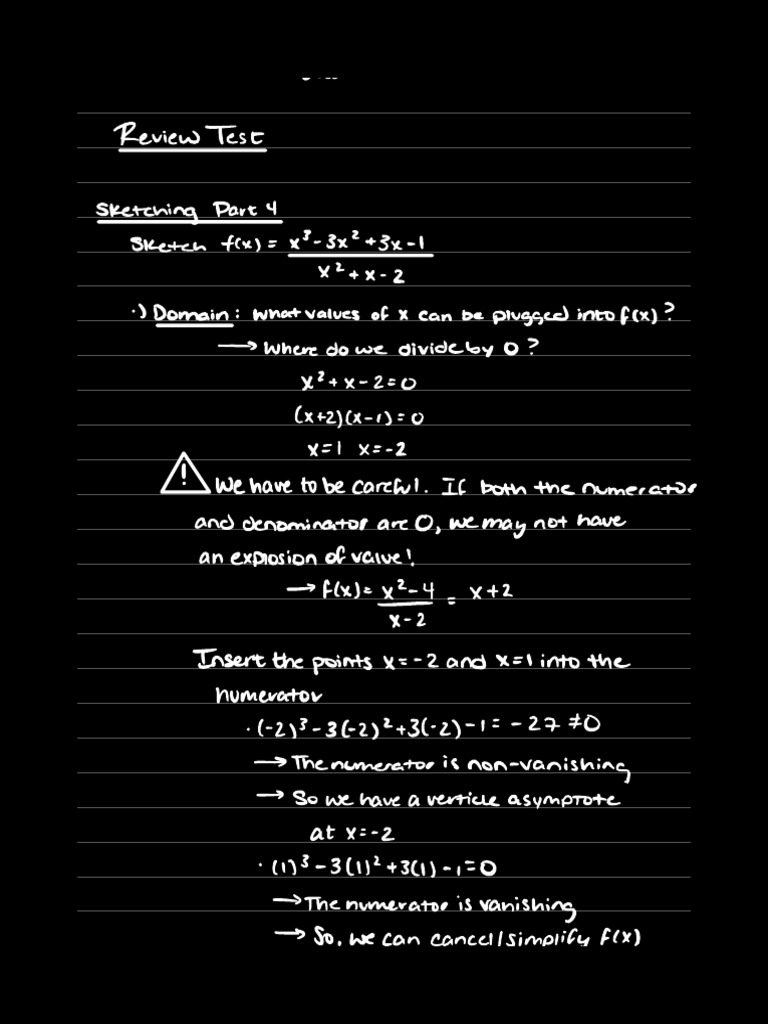 Review Test
Sketching Part 4
Sketch f(x) = x³-3x²+3x-1
x²+x-2
·) Domain: What values of x can be plugged into f(x)?
→ Where do we divide by 0?
x²+x-2=0
(x+2)(x-1)=0
x=1 x=-2
! We have to be careful. If both the numerator
and denominator are 0, we may not have
an explosion of value!
→ f(x) = x²-4 = x+2
x-2
Insert the points x=-2 and x=1 into the
numerator
·(-2)³-3(-2)²+3(-2)-1=-27≠0
→ The numerator is non-vanishing
→ So we have a verticle asymptote
at x=-2
·(1)³-3(1)²+3(1)-1=0
→ The numerator is vanishing
→ So, we can cancel/simplify f(x)